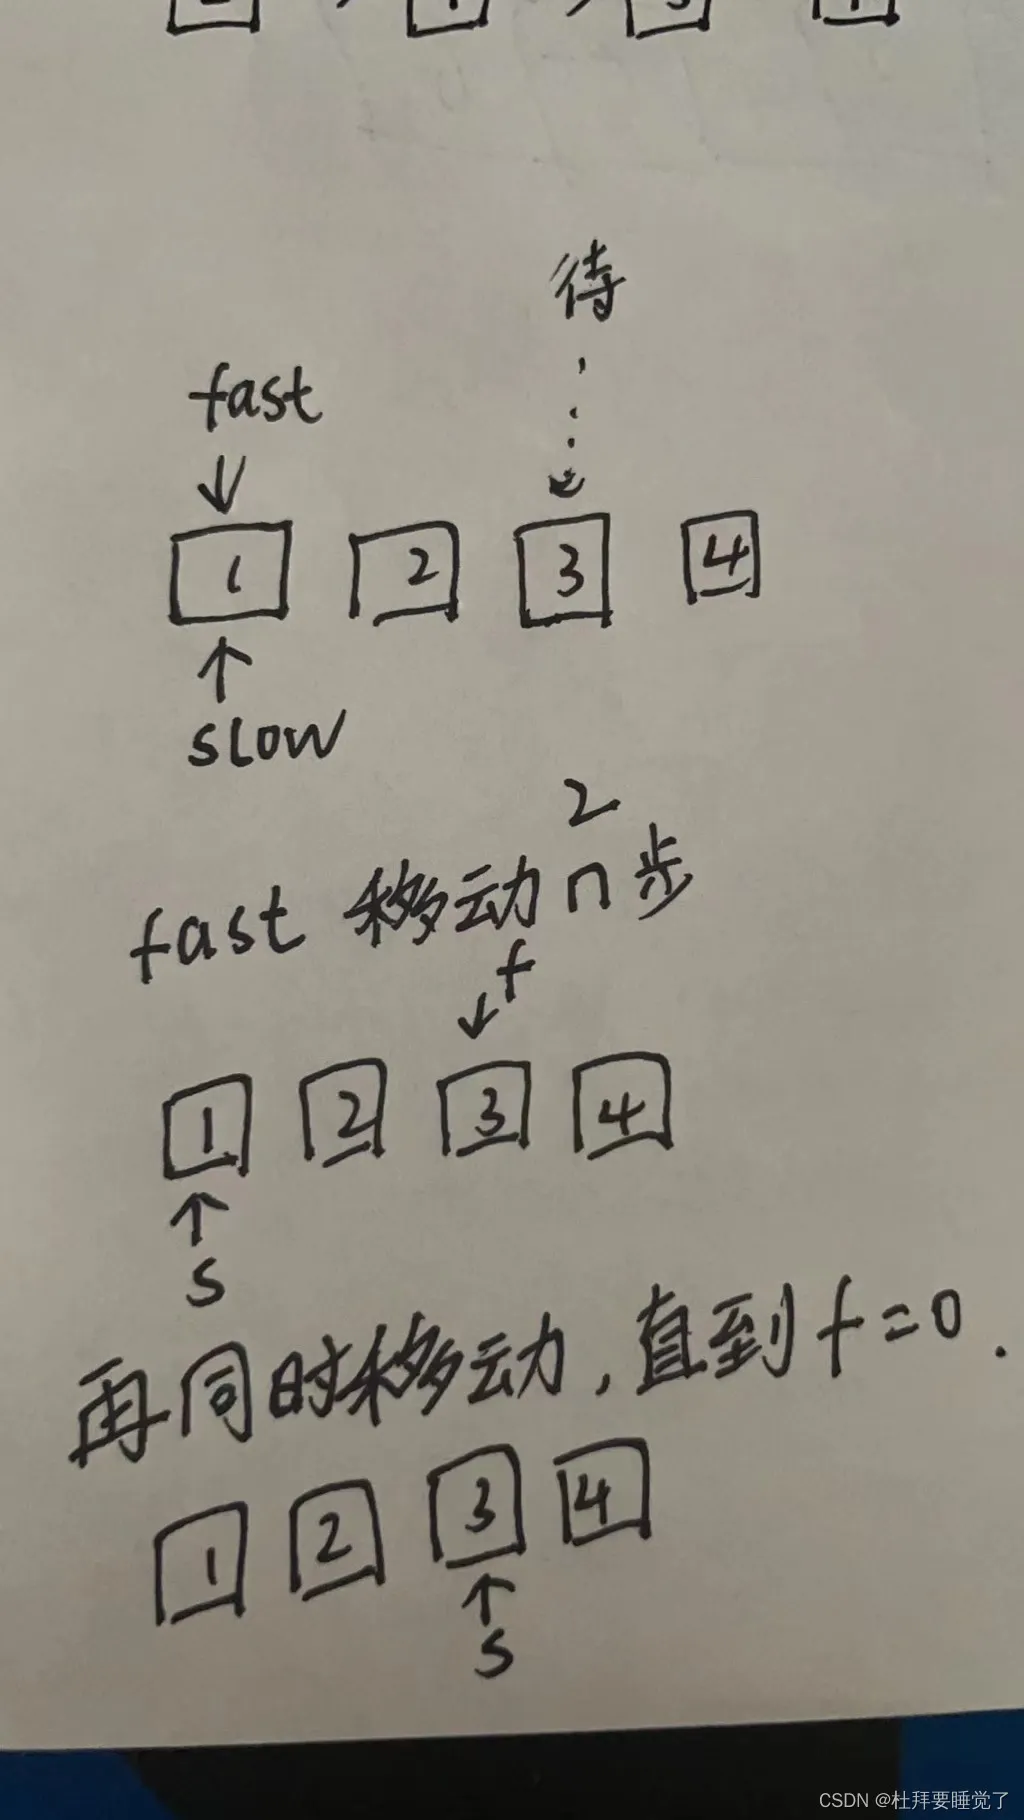 待
fast
1 2 3 4
slow
2
fast 移动n步
f
1 2 3 4
s
再同时移动,直到f=0.
1 2 3 4
s
CSDN @杜拜要睡觉了